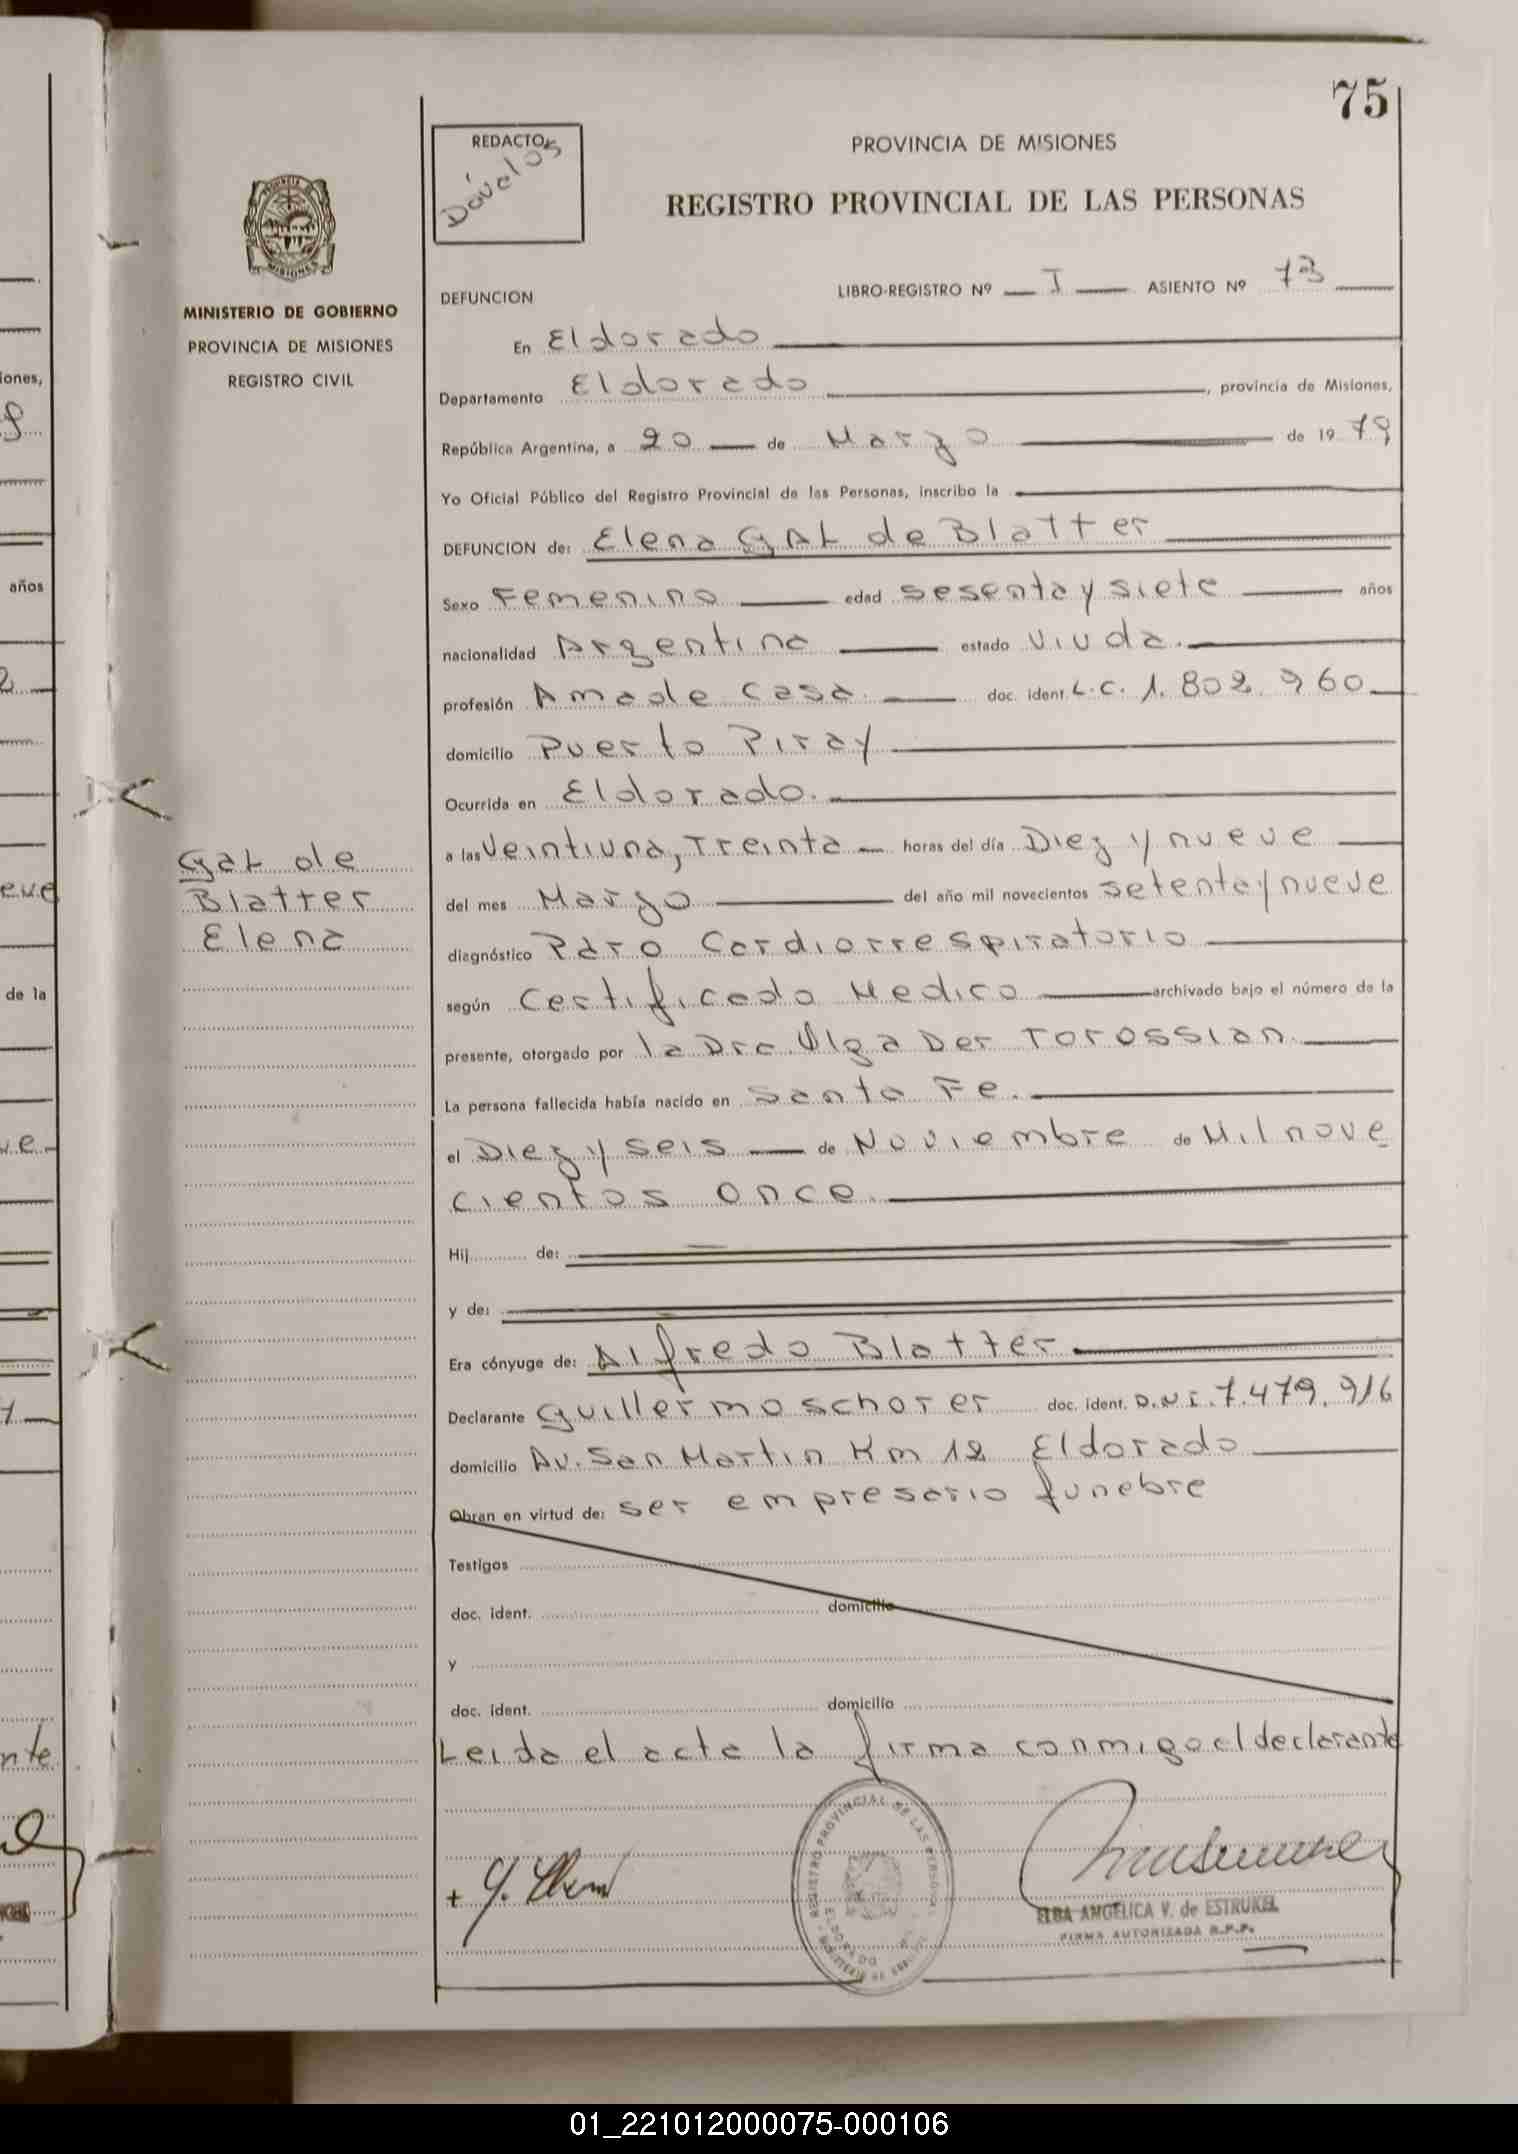 75
REDACTO:
Dávalos
PROVINCIA DE MISIONES
REGISTRO PROVINCIAL DE LAS PERSONAS
MINISTERIO DE GOBIERNO
PROVINCIA DE MISIONES
REGISTRO CIVIL
DEFUNCION
LIBRO-REGISTRO Nº I ASIENTO Nº 73
En Eldorado
Departamento Eldorado, provincia de Misiones,
República Argentina, a 20 de Marzo de 1979
Yo Oficial Público del Registro Provincial de las Personas, inscribo la
DEFUNCION de: Elena GAL de Blatter
Sexo Femenino edad sesenta y siete años
nacionalidad Argentina estado Viuda.
profesión Ama de Casa. doc. ident. L.C. 1.802.960
domicilio Puerto Piray
Ocurrida en Eldorado.
a las Veintiuna, Treinta horas del día Diez y nueve
del mes Marzo del año mil novecientos setenta y nueve
diagnóstico Paro Cardiorrespiratorio
según Certificado Medico archivado bajo el número de la
presente, otorgado por la Dra. Olga Der Torossian.
La persona fallecida había nacido en Santa Fe.
el Diez y seis de Noviembre de Mil nove
cientos once.
Hij de:
y de:
Era cónyuge de: Alfredo Blatter
Declarante Guillermo Schorer doc. ident. D.N.I. 7.479.916
domicilio Av. San Martin Km 12 Eldorado
Obran en virtud de: ser empresario funebre
Testigos
doc. ident. domicilio
y
doc. ident. domicilio
Leida el acta la firma conmigo el declarante
Gal de
Blatter
Elena
REGISTRO PROVINCIAL DE LAS PERSONAS
ELDORADO
ELBA ANGELICA V. de ESTRUKEL
FIRMA AUTORIZADA R.P.P.
iones,
años
eve
de la
nte
01_221012000075-000106